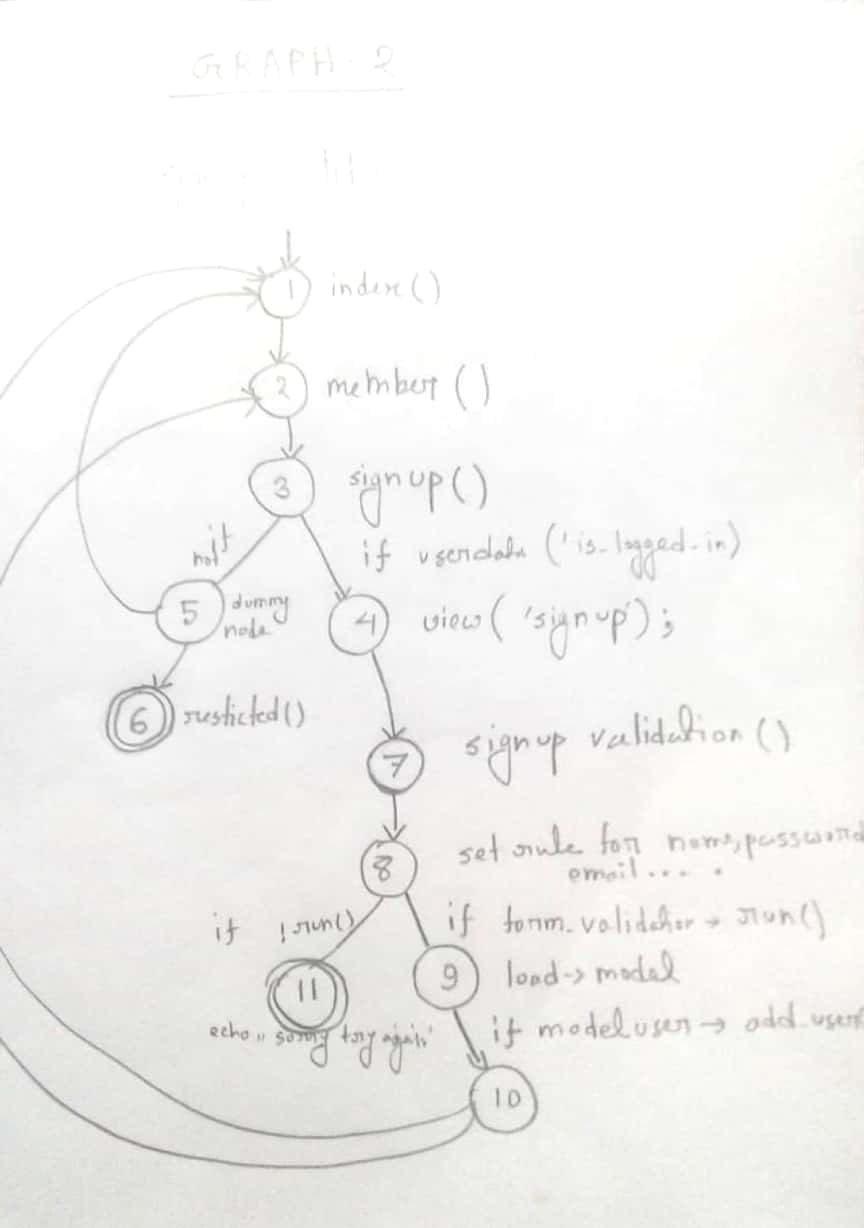 GRAPH-2
1 index()
2 member()
3 signup()
if not
if userdata ('is_logged_in)
5 dummy node
4 view( 'signup');
6 resticted()
7 signup validation()
8 set rule for name, password
email....
if !run()
if form_validator → run()
11
9 load-> model
echo "sorry try again"
if model user → add_user
10